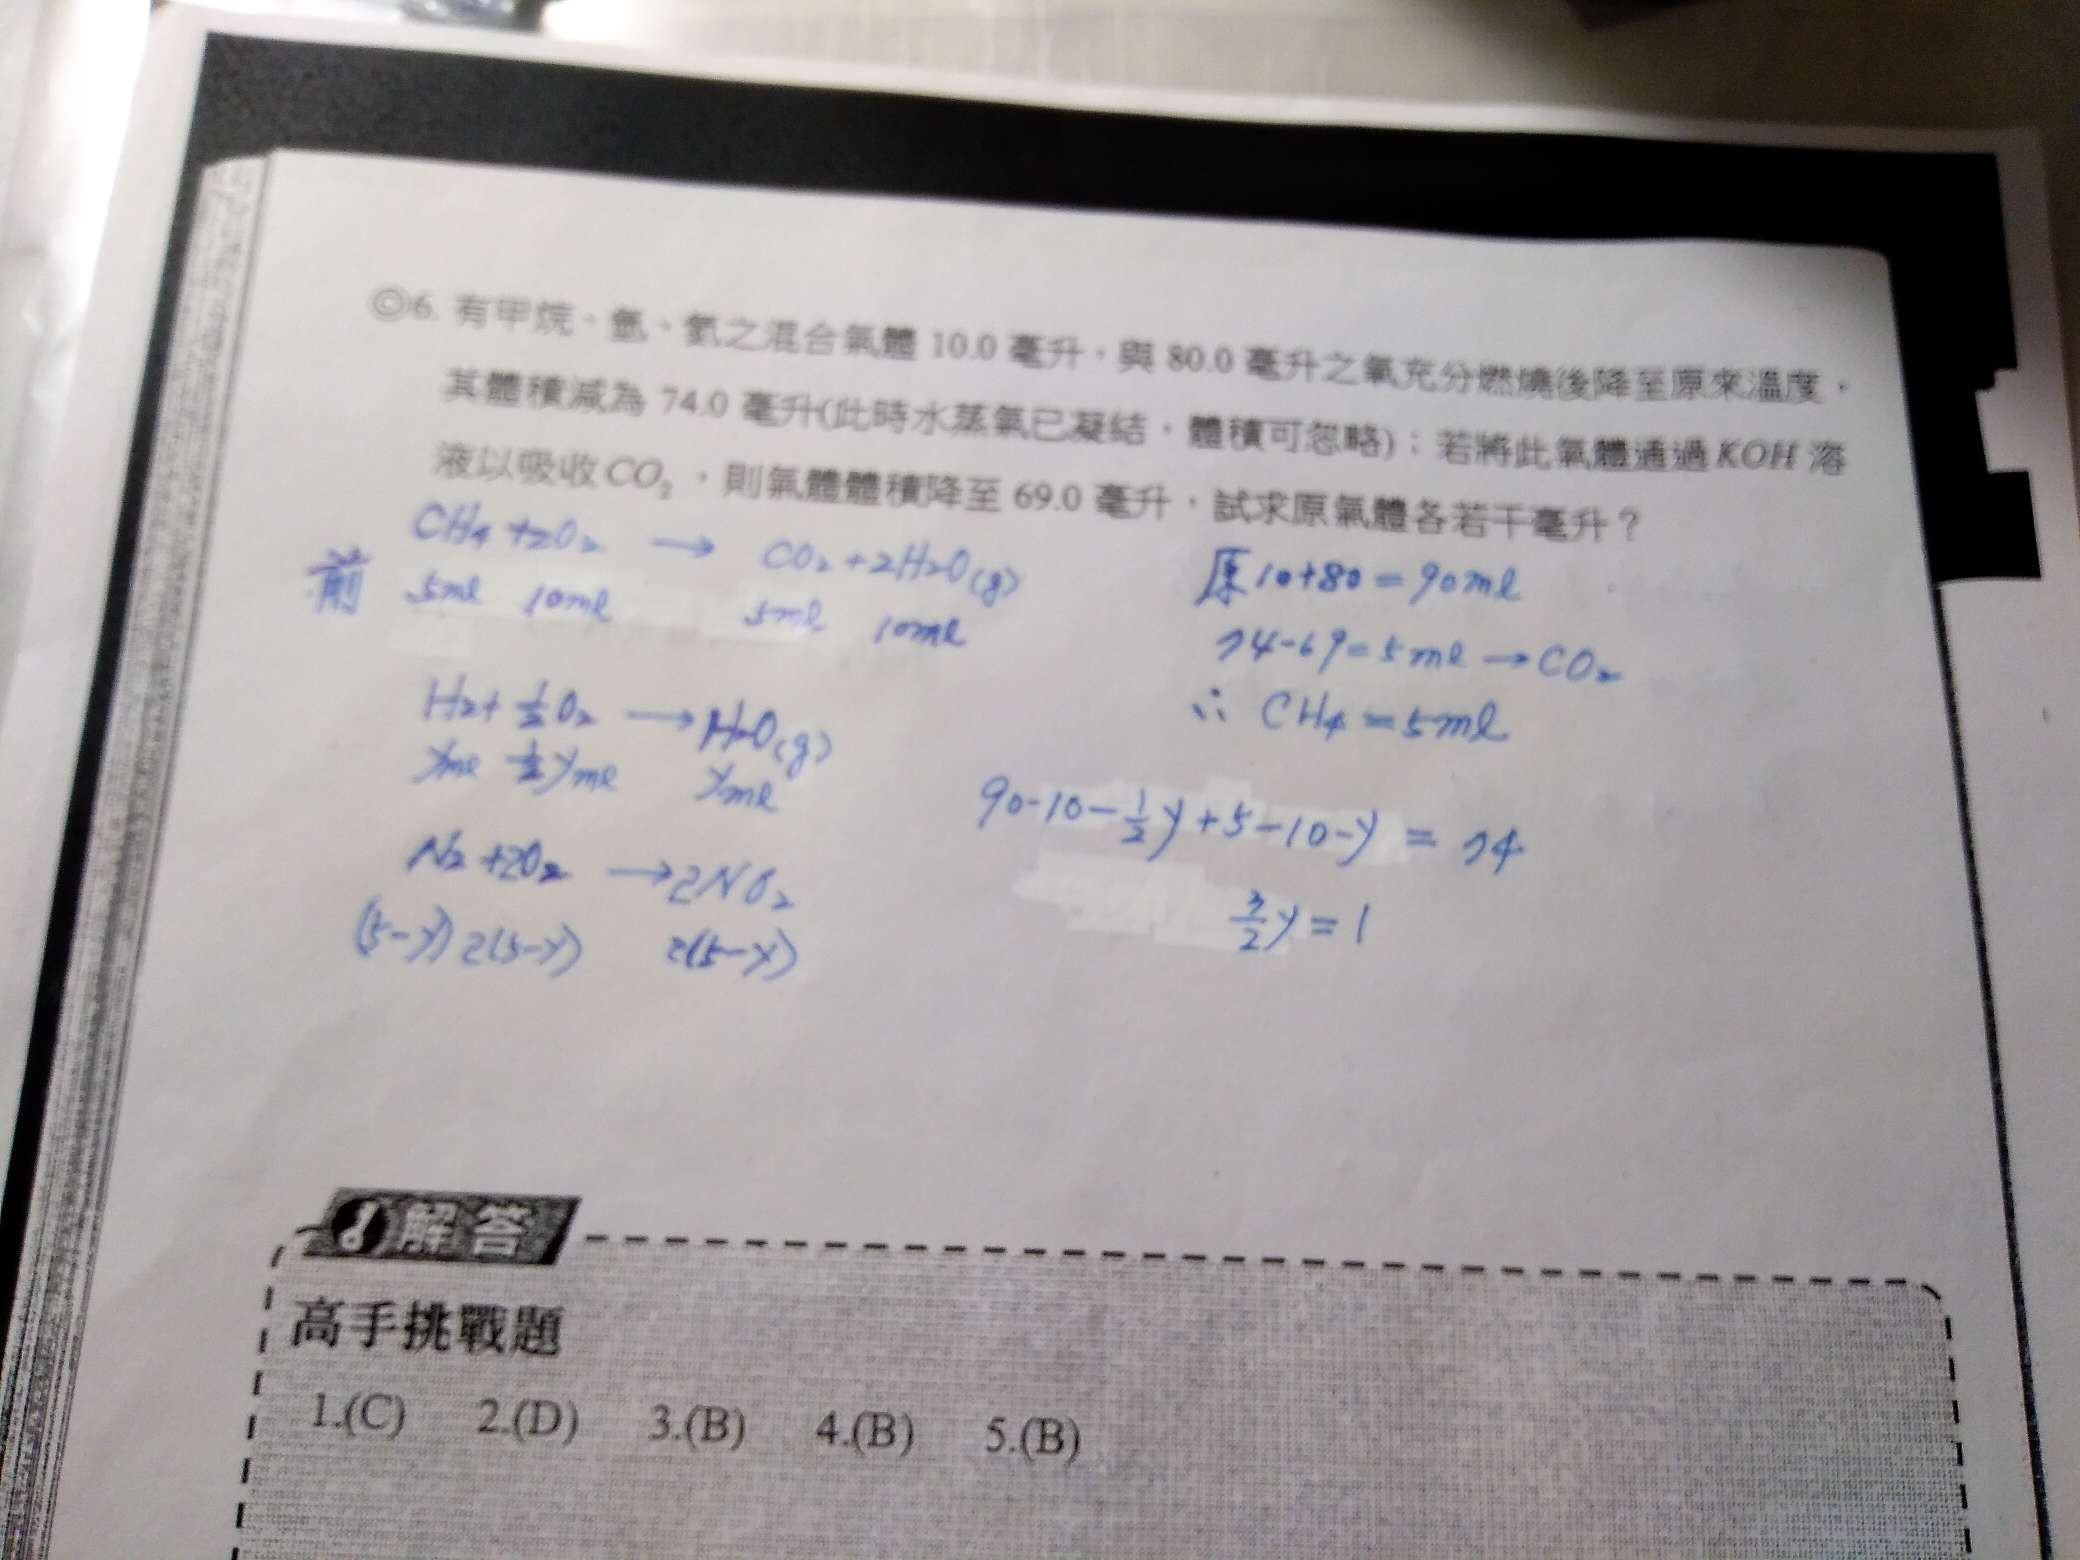 ◎6. 有甲烷、氫、氮之混合氣體 10.0 毫升，與 80.0 毫升之氧充分燃燒後降至原來溫度，
其體積減為 74.0 毫升(此時水蒸氣已凝結，體積可忽略)；若將此氣體通過 KOH 溶
液以吸收 CO₂，則氣體體積降至 69.0 毫升，試求原氣體各若干毫升？
CH₄ + 2O₂ → CO₂ + 2H₂O(g)
前 5ml 10ml 5ml 10ml
H₂ + ½O₂ → H₂O(g)
yml ½yml yml
N₂ + 2O₂ → 2NO₂
(5-y) 2(5-y) 2(5-y)
原 10+80=90ml
74-69=5ml → CO₂
∴ CH₄=5ml
90-10-½y+5-10-y = 74
3/2 y = 1
解答
高手挑戰題
1.(C) 2.(D) 3.(B) 4.(B) 5.(B)